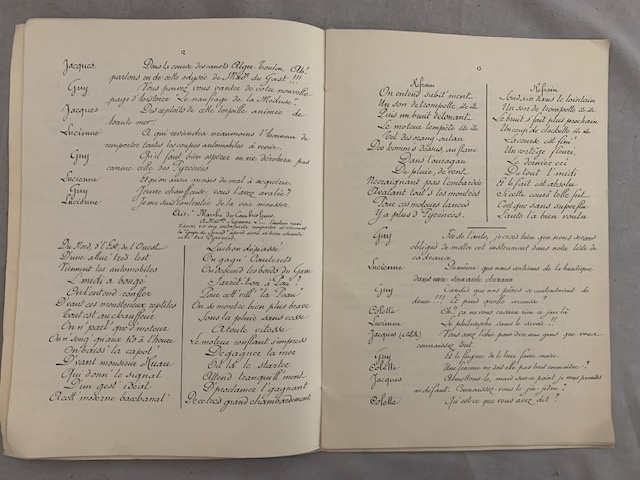 2
Jacques Dans la course des canots Alger-Toulon, Ah!
parlons en de cette odyssée de Mme du Gast!!!
Guy Vous pouvez vous vanter de votre nouvelle
page d'histoire "Le naufrage de la Meduse"
Jacques Des exploits de cette torpille animée de
haute mer.
Lucienne A qui reviendra néaumoins l'honneur de
remporter toutes les coupes automobiles à venir.
Guy Qu'il faut bien espérer on ne dérobera pas
comme celle des Pyrénées.
Lucienne Et qu'on aura moins de mal à acquérir.
Guy Jeune chauffeuse, vous l'avez avalée?
Lucienne Je me suis contentée de la voir mousser.
Air: Marche des Cambrioleurs
Du Nord, d'l'Est, de l'Ouest
D'une allur' très lest
Viennent les automobiles
L'midi a bougé
On l'entend ronfler
D'vant ces monstrueux reptiles
Tout est au chauffeur
On n'parl' que d'moteur
On n'song' qu'aux Ko à l'heure
On baiss' la capot'
D'vant monsieur Huau
Qui donn' le signal
D'un gest' idéal
A cett' moderne bacchanal'
Luchon dépassé
On gagn' Cauterets
On descend les bords du Gave
S'arrêt'-t-on à Pau?
Pour cett' vill' "la Peau"
On se montre bien plus brave
Sous la pluie sans cesse
A toute vitesse
Le moteur ronflant s'empresse
De gagner la mer
Où là le starter
Attend tranquill'ment
D'proclamer l'gagnant
De ce très grand chambardement
Refrain
On entend subit'ment
Un son de trompette été ité
Puis un bruit détonant
Le moteur tempête été ité
Tels des orang outans
Des homm's d'Esaüs, au flanc
Dans l'ouragan
De pluie, de vent
Ne craignant pas l'embardée
Avalant tout's les montées
Pour ces moteurs lancés
Y'a plus d'Pyrénées.
Refrain
Soudain dans le lointain
Un son de trompette été ité
Le bruit s'fait plus prochain
Un coup de clochette été ité
La course est fini'
Un cortège fleuri
Le dernier cri
De tout l'midi
Et le fait est absolu
D'cette cours' belle fut
C'est que sans superflu
L'auto l'a bien voulu.
Guy Foi de Tantès, je crois bien que nous serons
obligés de mettre cet instrument dans notre liste de
cadeaux
Lucienne De même que nous sortons de la boutique
dans une soixante chevaux
Guy Tandis que nos pères se contentaient de
deux!!! Et puis quelle cocarde?
Colette Oh! ça ne vous cassera rien ce jeu là
Lucienne Le philosophe sans le savoir!!!
Jacques (à Colette) Vous avez l'chic pour dire aux gens que vous ne
connaissez tout
Guy Et le flegme de le leur faire croire.
Colette Une femme ne doit elle pas tout connaître?
Jacques Admettons-le, mais sur ce point, je vous prends
en défaut. Connaissez-vous le jiu-jitsu?
Colette Qu'est ce que vous avez dit?